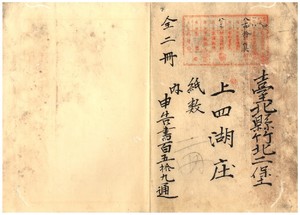 臺北縣竹北二堡
上四湖庄
紙數
內申告書百五拾九通
全二冊